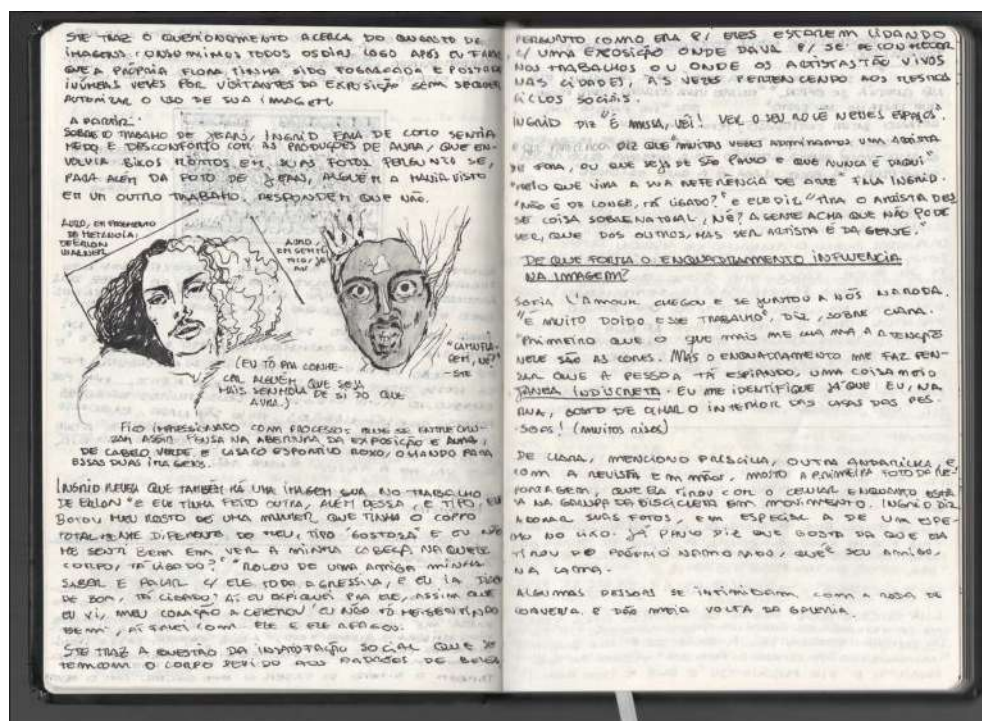 STE TRAZ O QUESTIONAMENTO ACERCA DO QUANTO DE
IMAGENS CONSUMIMOS TODOS OS DIAS. LOGO APÓS EU FALAR
QUE A PRÓPRIA FLORA TINHA SIDO FOGRAFADA E POSTADA
INÚMERAS VEZES POR VISITANTES DA EXPOSIÇÃO SEM SEQUER
AUTORIZAR O USO DE SUA IMAGEM
A PARTIR
SOBRE O TRABALHO DE JEAN, INGRID FALA DE COMO SENTIA
MEDO E DESCONFORTO COM AS PRODUÇÕES DE AURA, QUE EN-
VOLVIA BIXOS MORTOS EM SUAS FOTOS. PERGUNTO SE,
PARA ALÉM DA FOTO DE JEAN, ALGUÉM A HAVIA VISTO
EM UM OUTRO TRABALHO. RESPONDEM QUE NÃO.
AURO, EM FRAGMENTO
DE METANOIA,
DE ERLON
WARNER
AURO,
EM SEM TÍ-
TULO, JE
AN
"CAMUFLA-
GEM, NÉ?"
- STE
(EU TÔ PRA CONHE-
CER ALGUÉM QUE SEJA
MAIS SENHORA DE SI DO QUE
AURA.)
FICO IMPRESSIONADO COM PROCESSOS QUE SE ENTRECRU-
ZAM ASSIM. PENSA NA ABERTURA DA EXPOSIÇÃO E AURA,
DE CABELO VERDE E CASACO ESPORTIVO ROXO, OLHANDO PARA
ESSAS DUAS IMAGENS.
INGRID REVELA QUE TAMBÉM HÁ UMA IMAGEM SUA NO TRABALHO
DE ERLON "E ELE TINHA FEITO OUTRA, ALÉM DESSA, E TIPO, ELE
BOTOU MEU ROSTO DE UMA MULHER QUE TINHA O CORPO
TOTALMENTE DIFERENTE DO MEU, TIPO 'GOSTOSA' E EU NÃO
ME SENTI BEM EM VER A MINHA CABEÇA NAQUELE
CORPO, TÁ LIGADO?" "ROLOU DE UMA AMIGA MINHA
SABER E FALAR C/ ELE TODA AGRESSIVA, E EU IA
DE BOM, TÁ LIGADO? AÍ EU EXPLIQUEI PRA ELE, ASSIM QUE
EU VI, MEU CORAÇÃO ACELEROU 'EU NÃO TÔ ME SENTINDO
BEM', AÍ FALEI COM ELE E ELE APAGOU.
STE TRAZ A QUESTÃO DA INSATISFAÇÃO SOCIAL QUE SE
TEM COM O CORPO DEVIDO AOS PADRÕES DE BELEZA
PERGUNTO COMO ERA P/ ELES ESTAREM LIDANDO
C/ UMA EXPOSIÇÃO ONDE DAVA P/ SE RECONHECER
NOS TRABALHOS OU ONDE OS ARTISTAS TÃO VIVOS
NAS CIDADES, ÀS VEZES PERTENCENDO AOS MESMOS
CICLOS SOCIAIS.
INGRID DIZ "É MASSA, VÉI! VER O SEU ROLÊ NESSES ESPAÇOS."
DIZ QUE MUITAS VEZES ADMIRAMOS UMA ARTISTA
DE FORA, OU QUE SEJA DE SÃO PAULO E QUE NUNCA É DAQUI"
"MEIO QUE VIRA A SUA REFERÊNCIA DE ARTE" FALA INGRID.
"NÃO É DE LONGE, TÁ LIGADO?" E ELE DIZ "TIRA O ARTISTA DES
SE COISA SOBRENATURAL, NÉ? A GENTE ACHA QUE NÃO PODE
SER, QUE DOS OUTROS, MAS SER ARTISTA É DA GENTE."
DE QUE FORMA O ENQUADRAMENTO INFLUENCIA
NA IMAGEM?
SOFIA L'AMOUR CHEGOU E SE JUNTOU A NÓS NA RODA.
"É MUITO DOIDO ESSE TRABALHO", DIZ, SOBRE CLARA.
"PRIMEIRO QUE O QUE MAIS ME CHAMA A ATENÇÃO
NELE SÃO AS CORES. MAS O ENQUADRAMENTO ME FAZ PEN-
SAR QUE A PESSOA TÁ ESPIANDO, UMA COISA MEIO
JANELA INDISCRETA. EU ME IDENTIFIQUE JÁ QUE EU, NA
RUA, GOSTO DE OLHAR O INTERIOR DAS CASAS DAS PES-
SOAS! (MUITOS RISOS)
DE CLARA, MENCIONO PRISCILA, OUTRA ANDARILHA, E
COM A REVISTA EM MÃOS, MOSTRO A PRIMEIRA FOTO DA RE-
PORTAGEM, QUE ELA TIROU COM O CELULAR ENQUANTO ESTA
VA NA GARUPA DA BICICLETA EM MOVIMENTO. INGRID DIZ
ADORAR SUAS FOTOS, EM ESPECIAL A DE UM ESPE-
LHO NO LIXO. JÁ PAULO DIZ QUE GOSTA DA QUE ELA
TIROU DO PRÓPRIO NAMORADO, QUE É SEU AMIGO,
NA CAMA.
ALGUMAS PESSOAS SE INTIMIDAM COM A RODA DE
CONVERSA E DÃO MEIA VOLTA DA GALERIA.